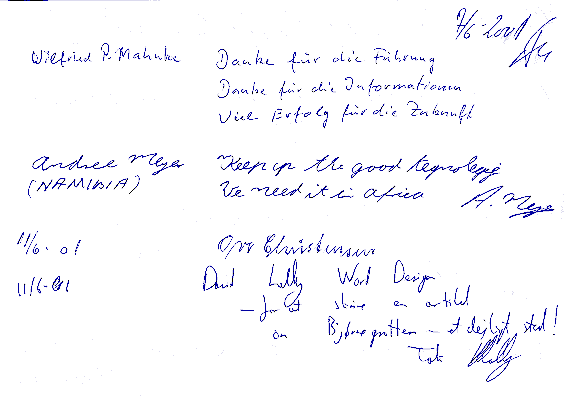 7/6-2001
Wilfried P. Mahnke Danke für die Führung
Danke für die Informationen
Viel Erfolg für die Zukunft
Andree Meyer Keep up the good tegnologig
(NAMIBIA) We need it in africa A. Meye
11/6-01 Christensen
11/6-01 David Lally Word Design
– for at skrive en artikel
om Bjørnegrotten – et dejligt sted!
Tak